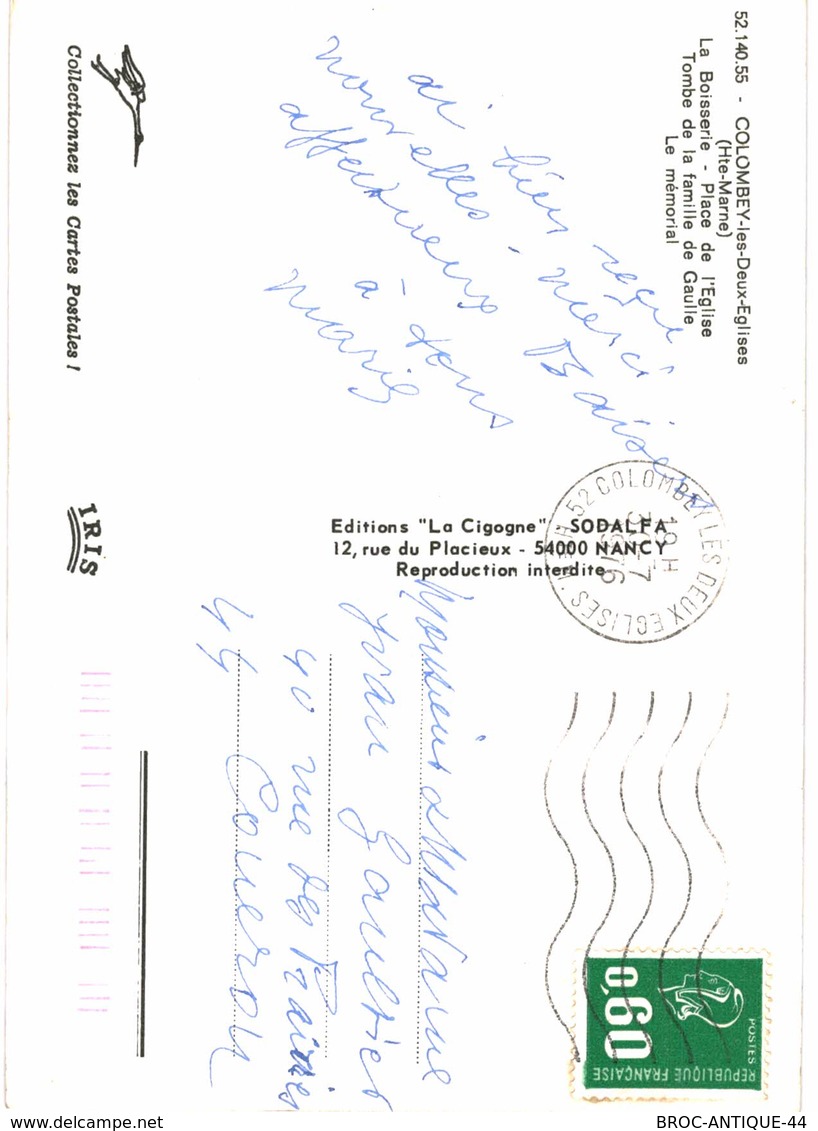 52.140.55 - COLOMBEY-les-Deux-Eglises
(Hte-Marne)
La Boisserie - Place de l'Eglise
Tombe de la famille de Gaulle
Le mémorial
ai bien reçu
nouvelles. merci Baisers
affectueux
à tous
Marie
Collectionnez les Cartes Postales !
Editions "La Cigogne" SODALFA
12, rue du Placieux - 54000 NANCY
Reproduction interdite
IRIS
52 COLOMBEY LES DEUX EGLISES
19 H
30-7
1976
POSTES
0,60
REPUBLIQUE FRANÇAISE
Monsieur & Madame
Yvan Gaultier
40 rue des Prairies
44 Coueron
BROC-ANTIQUE-44